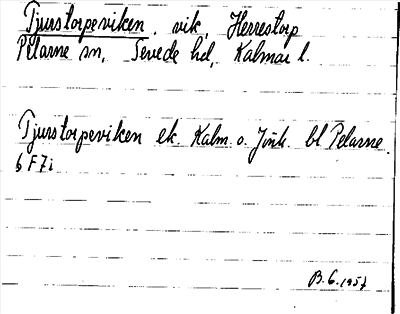 Tjurstorpeviken, vik, Herrestorp
Pelarne sn, Sevede hd, Kalmar l.
Tjurstorpeviken ek. Kalm. o. Jönk. bl Pelarne
6 F 7 i
B. G. 1957